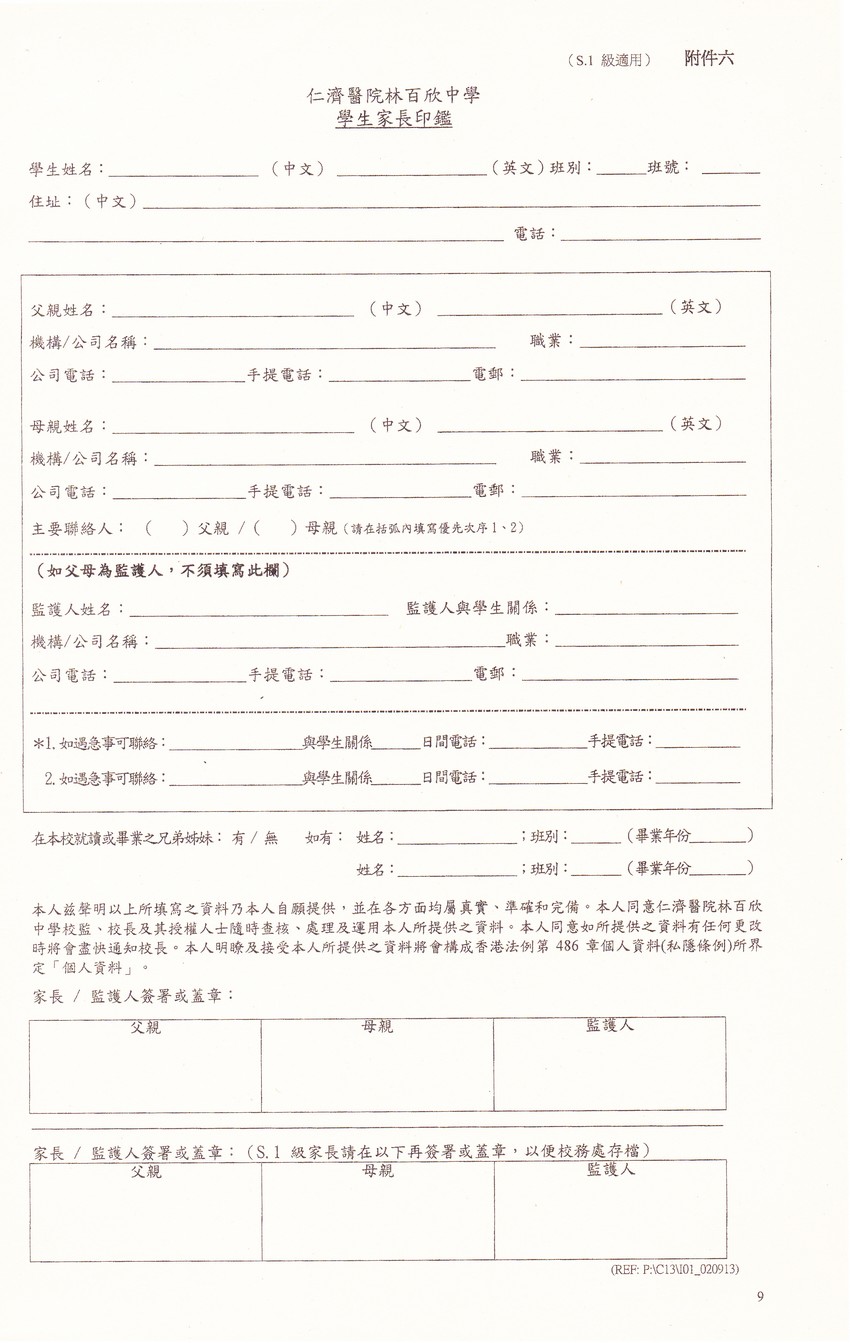 （S.1 級適用） 附件六
仁濟醫院林百欣中學
學生家長印鑑
學生姓名：＿＿＿＿＿＿＿＿（中文）＿＿＿＿＿＿＿＿（英文）班別：＿＿＿班號：＿＿＿
住址：（中文）＿＿＿＿＿＿＿＿＿＿＿＿＿＿＿＿＿＿＿＿
＿＿＿＿＿＿＿＿＿＿＿＿＿＿＿＿ 電話：＿＿＿＿＿＿＿＿
父親姓名：＿＿＿＿＿＿＿＿（中文）＿＿＿＿＿＿＿＿（英文）
機構/公司名稱：＿＿＿＿＿＿＿＿ 職業：＿＿＿＿＿＿
公司電話：＿＿＿＿＿＿手提電話：＿＿＿＿＿＿電郵：＿＿＿＿＿＿
母親姓名：＿＿＿＿＿＿＿＿（中文）＿＿＿＿＿＿＿＿（英文）
機構/公司名稱：＿＿＿＿＿＿＿＿ 職業：＿＿＿＿＿＿
公司電話：＿＿＿＿＿＿手提電話：＿＿＿＿＿＿電郵：＿＿＿＿＿＿
主要聯絡人：（　）父親 /（　）母親（請在括弧內填寫優先次序 1、2）
（如父母為監護人，不須填寫此欄）
監護人姓名：＿＿＿＿＿＿＿＿ 監護人與學生關係：＿＿＿＿＿＿
機構/公司名稱：＿＿＿＿＿＿＿＿職業：＿＿＿＿＿＿
公司電話：＿＿＿＿＿＿手提電話：＿＿＿＿＿＿電郵：＿＿＿＿＿＿
*1. 如遇急事可聯絡：＿＿＿＿＿＿與學生關係＿＿＿日間電話：＿＿＿＿＿手提電話：＿＿＿＿
2. 如遇急事可聯絡：＿＿＿＿＿＿與學生關係＿＿＿日間電話：＿＿＿＿＿手提電話：＿＿＿＿
在本校就讀或畢業之兄弟姊妹：有 / 無 如有：姓名：＿＿＿＿＿＿；班別：＿＿＿（畢業年份＿＿＿）
姓名：＿＿＿＿＿＿；班別：＿＿＿（畢業年份＿＿＿）
本人茲聲明以上所填寫之資料乃本人自願提供，並在各方面均屬真實、準確和完備。本人同意仁濟醫院林百欣
中學校監、校長及其授權人士隨時查核、處理及運用本人所提供之資料。本人同意如所提供之資料有任何更改
時將會盡快通知校長。本人明瞭及接受本人所提供之資料將會構成香港法例第 486 章個人資料(私隱條例)所界
定「個人資料」。
家長 / 監護人簽署或蓋章：
父親 母親 監護人
家長 / 監護人簽署或蓋章：（S.1 級家長請在以下再簽署或蓋章，以便校務處存檔）
父親 母親 監護人
(REF: P:\C13\I01_020913)
9